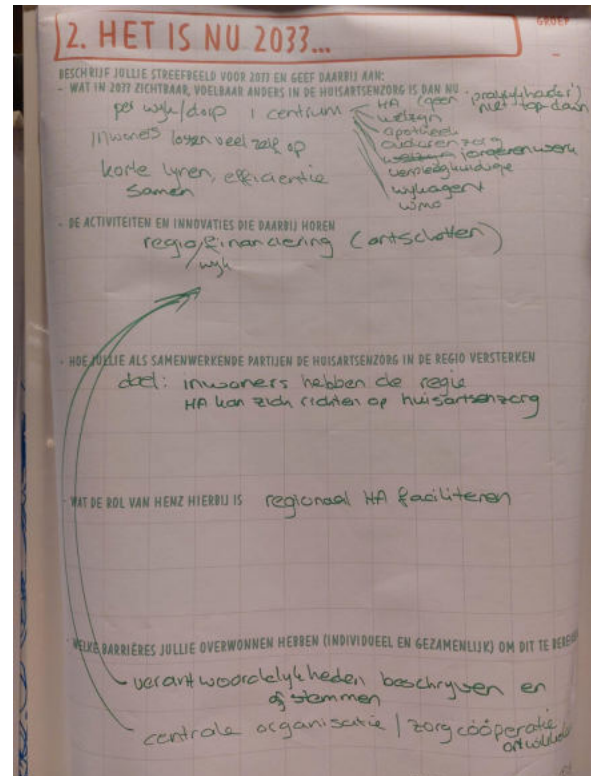 GROEP
2. HET IS NU 2033...
BESCHRIJF JULLIE STREEFBEELD VOOR 2033 EN GEEF DAARBIJ AAN:
- WAT IN 2033 ZICHTBAAR, VOELBAAR ANDERS IN DE HUISARTSENZORG IS DAN NU
per wijk/dorp 1 centrum
HA (geen praktijkhouder)
niet top-down
welzijn
apotheek
ouderenzorg
jongerenwerk
verpleegkundige
wijkagent
WMO
Inwoners lossen veel zelf op
korte lijnen, efficientie
samen
- DE ACTIVITEITEN EN INNOVATIES DIE DAARBIJ HOREN
regio/financiering (ontschotten)
wijk
- HOE JULLIE ALS SAMENWERKENDE PARTIJEN DE HUISARTSENZORG IN DE REGIO VERSTERKEN
doel: inwoners hebben de regie
HA kan zich richten op huisartsenzorg
- WAT DE ROL VAN HENZ HIERBIJ IS regionaal HA faciliteren
- WELKE BARRIÈRES JULLIE OVERWONNEN HEBBEN (INDIVIDUEEL EN GEZAMENLIJK) OM DIT TE BEREIKEN
verantwoordelijkheden beschrijven en
afstemmen
centrale organisatie / zorgcoöperatie
ontwikkelen